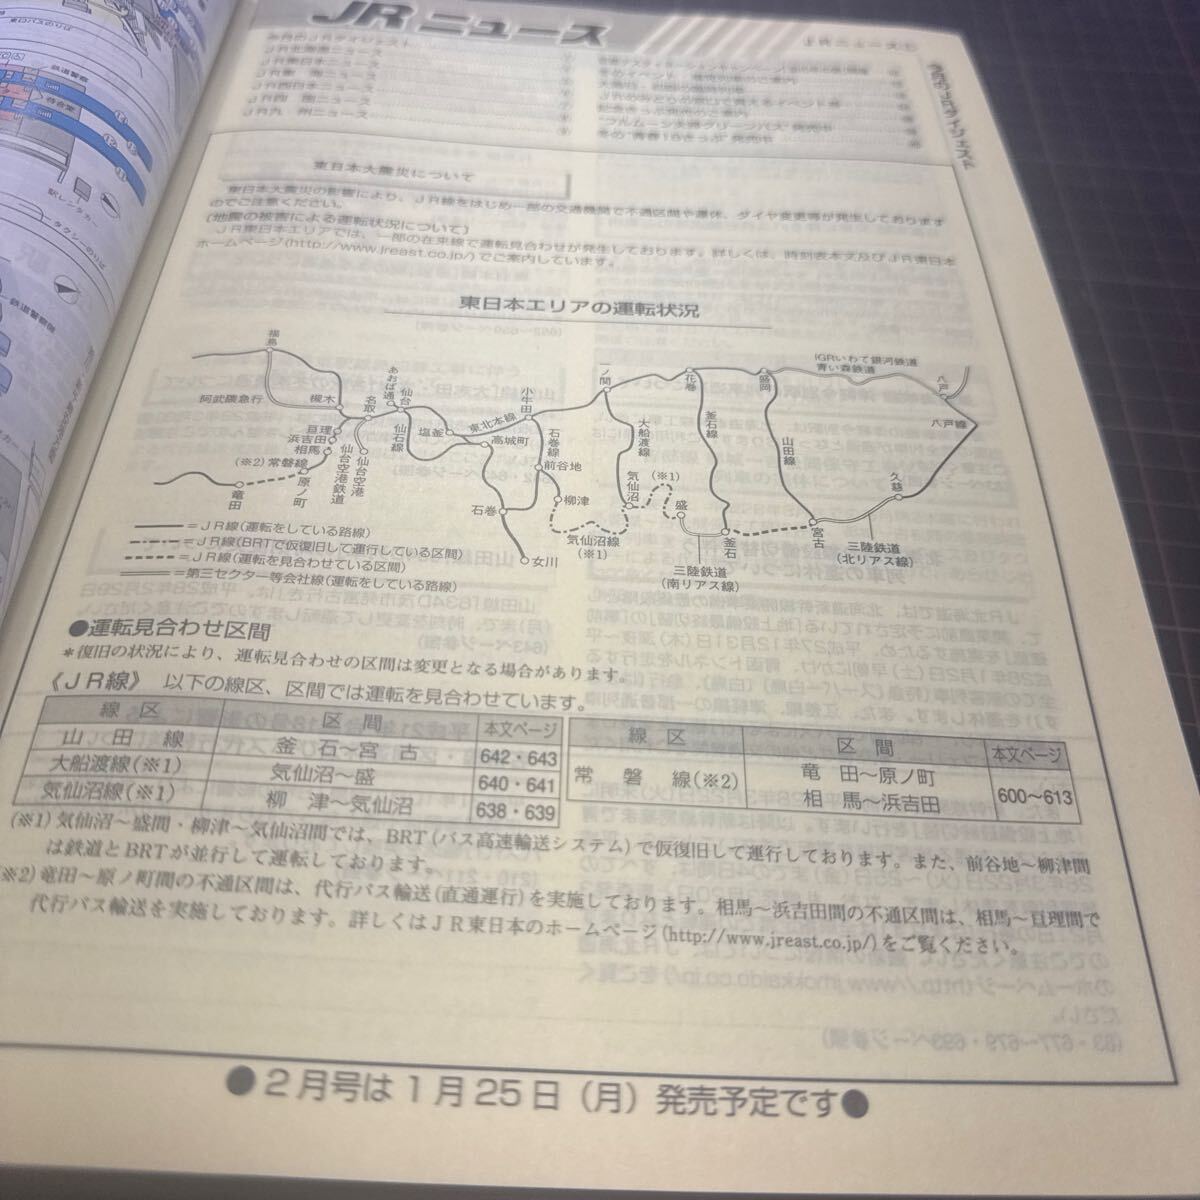 JRニュース
JRニュース①
3月のJRダイジェスト
JR北海道ニュース
JR東日本ニュース
JR西日本ニュース
JR四 国ニュース
JR九 州ニュース
"フルムーン夫婦グリーンパス"発売中
冬の"青春18きっぷ"発売中
東日本大震災について
東日本大震災の影響により、JR線をはじめ一部の交通機関で不通区間や運休、ダイヤ変更等が発生しております
のでご注意ください。
(地震の被害による運転状況について)
JR東日本エリアでは、一部の在来線で運転見合わせが発生しております。詳しくは、時刻表本文及びJR東日本
ホームページ(http://www.jreast.co.jp/)でご案内しています。
東日本エリアの運転状況
福島
阿武隈急行
槻木
亘理
浜吉田
相馬
(※2)常磐線
原ノ町
竜田
名取
あおば通
仙台
仙石線
仙台空港
仙台空港鉄道
塩釜
東北本線
高城町
小牛田
石巻線
前谷地
石巻
女川
柳津
気仙沼線
(※1)
一ノ関
大船渡線
気仙沼
(※1)
盛
花巻
釜石線
釜石
三陸鉄道
(南リアス線)
盛岡
山田線
宮古
IGRいわて銀河鉄道
青い森鉄道
八戸
八戸線
久慈
三陸鉄道
(北リアス線)
=JR線(運転をしている路線)
=JR線(BRTで仮復旧して運行している区間)
=JR線(運転を見合わせている区間)
=第三セクター等会社線(運転をしている路線)
●運転見合わせ区間
*復旧の状況により、運転見合わせの区間は変更となる場合があります。
《JR線》 以下の線区、区間では運転を見合わせています。
線 区 区 間 本文ページ
山 田 線 釜 石〜宮 古 642・643
大船渡線(※1) 気仙沼〜盛 640・641
気仙沼線(※1) 柳 津〜気仙沼 638・639
線 区 区 間 本文ページ
常 磐 線(※2) 竜 田〜原ノ町 600〜613
相 馬〜浜吉田
(※1)気仙沼〜盛間・柳津〜気仙沼間では、BRT(バス高速輸送システム)で仮復旧して運行しております。また、前谷地〜柳津間
は鉄道とBRTが並行して運転しております。
(※2)竜田〜原ノ町間の不通区間は、代行バス輸送(直通運行)を実施しております。相馬〜浜吉田間の不通区間は、相馬〜亘理間で
代行バス輸送を実施しております。詳しくはJR東日本のホームページ(http://www.jreast.co.jp/)をご覧ください。
●2月号は1月25日(月)発売予定です●
鉄道警察
待合室
駅レンタカー
タクシーのりば
鉄道警察隊